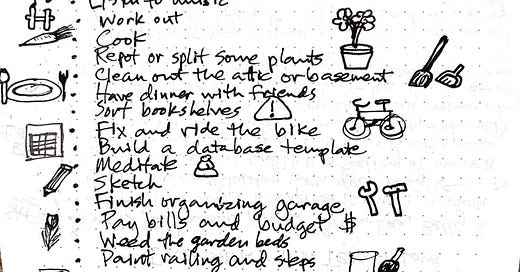 Listen to music
Work out
Cook
Repot or split some plants
Clean out the attic or basement
Have dinner with friends
Sort bookshelves
Fix and ride the bike
Build a database template
Meditate
Sketch
Finish organizing garage
Pay bills and budget $
Weed the garden beds
Paint railing and steps